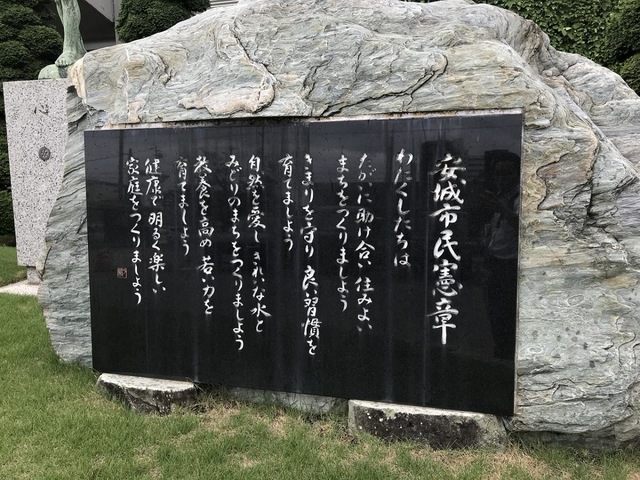 安城市民憲章
わたくしたちは
たがいに助け合い 住みよい
まちをつくりましょう
きまりを守り 良い習慣を
育てましょう
自然を愛し きれいな水と
みどりのまちをつくりましょう
教養を高め 若い力を
育てましょう
健康で 明るく楽しい
家庭をつくりましょう
心